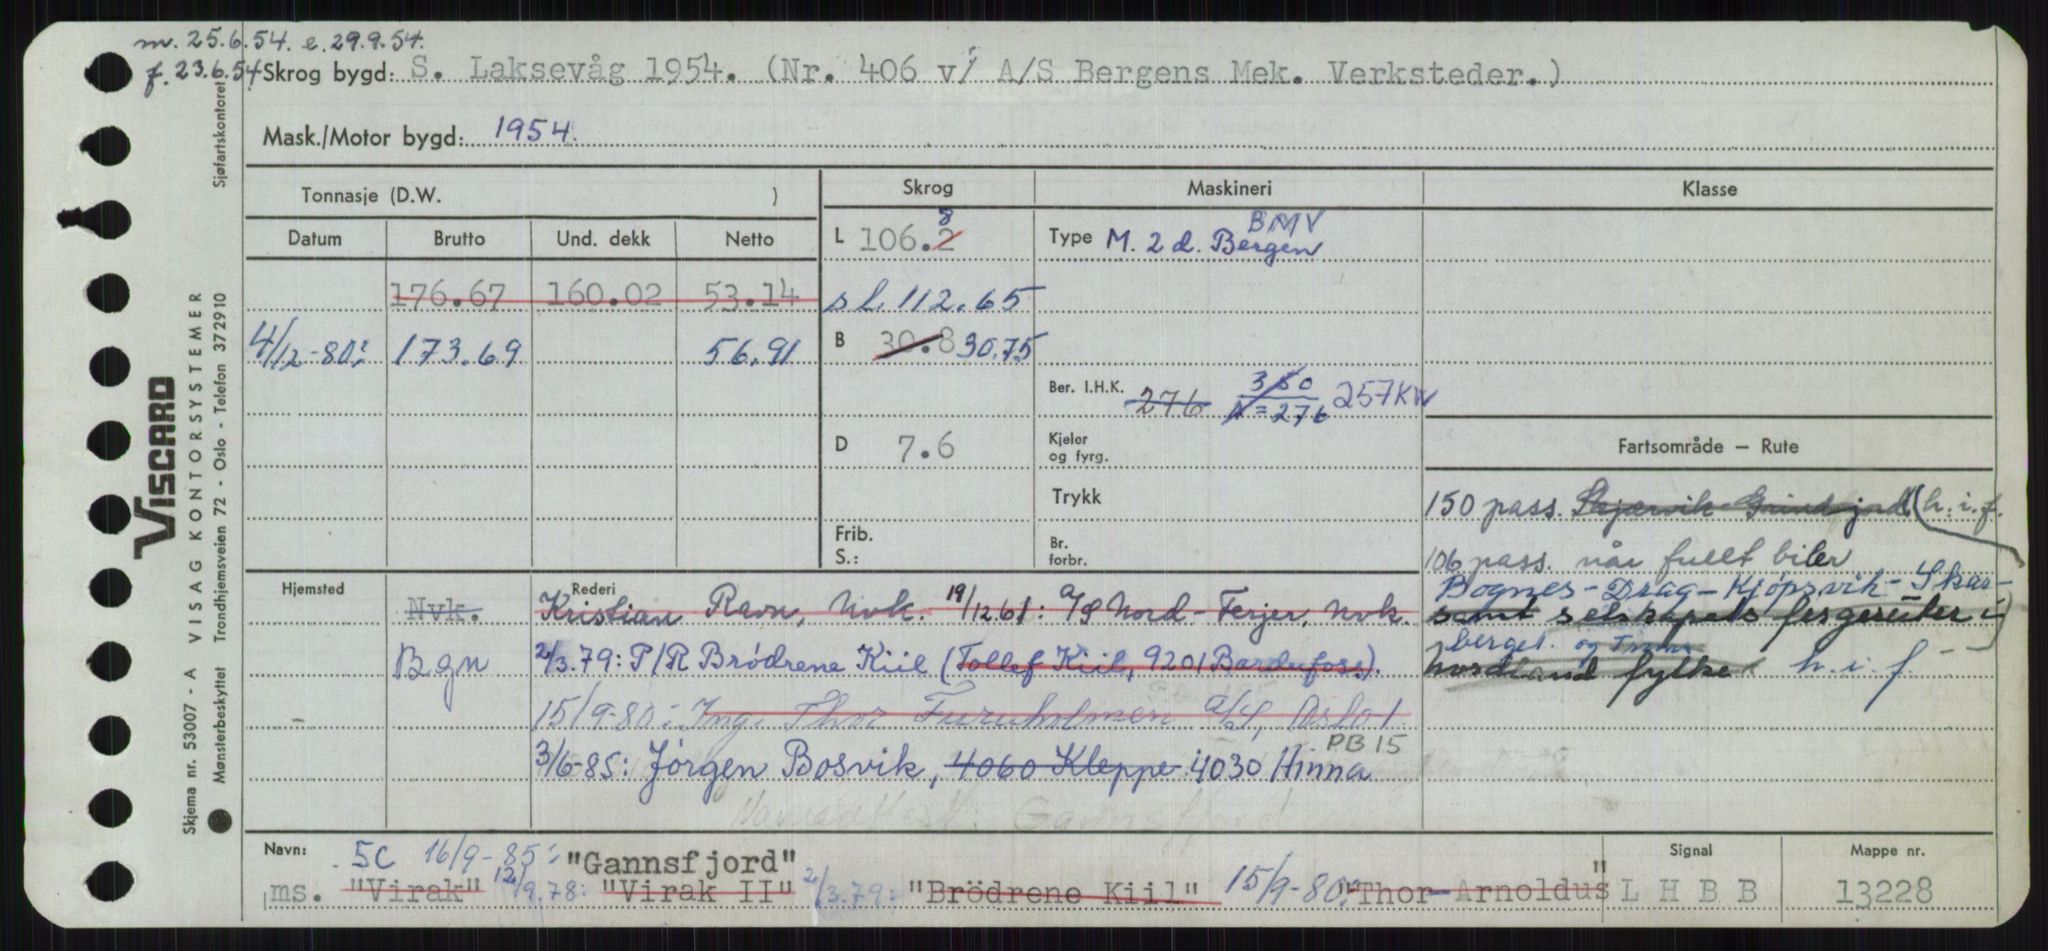 m. 25.6.54. e. 29.9.54.
f. 23.6.54 Skrog bygd: S. Laksevåg 1954. (Nr. 406 v/ A/S Bergens Mek. Verksteder.)
Mask./Motor bygd: 1954.
Tonnasje (D.W. ) Skrog Maskineri Klasse
Datum Brutto Und. dekk Netto L 106.2 8 Type M. 2 d. Bergen BMV
176.67 160.02 53.14 sl. 112.65
4/12-80: 173.69 56.91 B 30.8 30.75
Ber. I.H.K. 276 350 N=276 257KW
D 7.6 Kjeler og fyrg. Fartsområde — Rute
Trykk
Frib. S.: Br. forbr.
150 pass. Skjærvik-Grindfjord (h.i.f.
106 pass. når fullt biler
Bognes-Drag-Kjøpsvik-Skar-
samt selskapets fergeruter i
berget. og
Nordland fylke h.i.f.
Hjemsted Rederi
Nvk. Kristian Ravn, Nvk. 19/12.61: A/S Nord-Ferjer, Nvk.
Bgn 2/3.79: P/R Brödrene Kiil (Tollef Kiil, 9201 Bardufoss).
15/9-80: Ing. Thor Furuholmen A/S, Oslo 1.
PB 15
3/6-85: Jørgen Bosvik, 4060 Kleppe. 4030 Hinna
Gannsfjord
Navn: 5C 16/9-85: "Gannsfjord" Signal Mappe nr.
ms. "Virak" 12/9.78: "Virak II" 2/3.79: "Brödrene Kiil" 15/9-80: "Thor Arnoldus" L H B B 13228
VISCARD
VISAG KONTORSYSTEMER
Skjema nr. 53007 - A
Mønsterbeskyttet Trondhjemsveien 72 - Oslo - Telefon 372910 Sjøfartskontoret